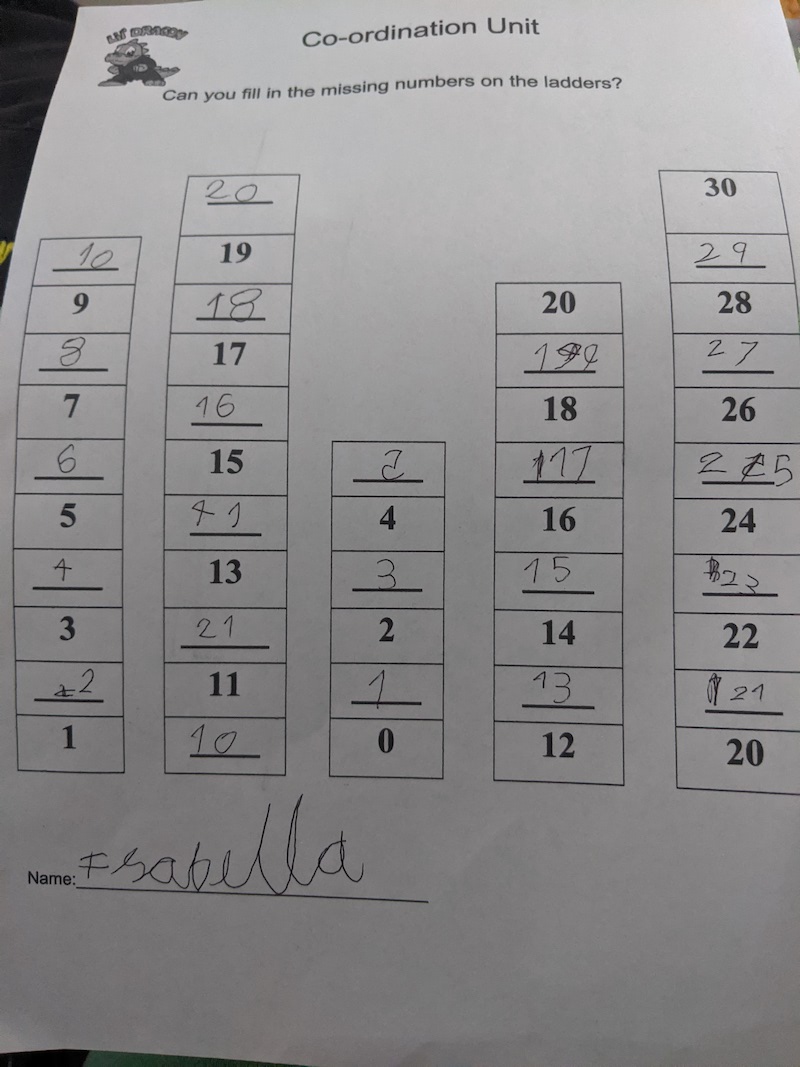 Lil' DRAGON
Co-ordination Unit
Can you fill in the missing numbers on the ladders?
10
9
8
7
6
5
4
3
2
1
20
19
18
17
16
15
41
13
21
11
10
2
4
3
2
1
0
20
19
18
17
16
15
14
13
12
30
29
28
27
26
25
24
23
22
21
20
Name: Isabella